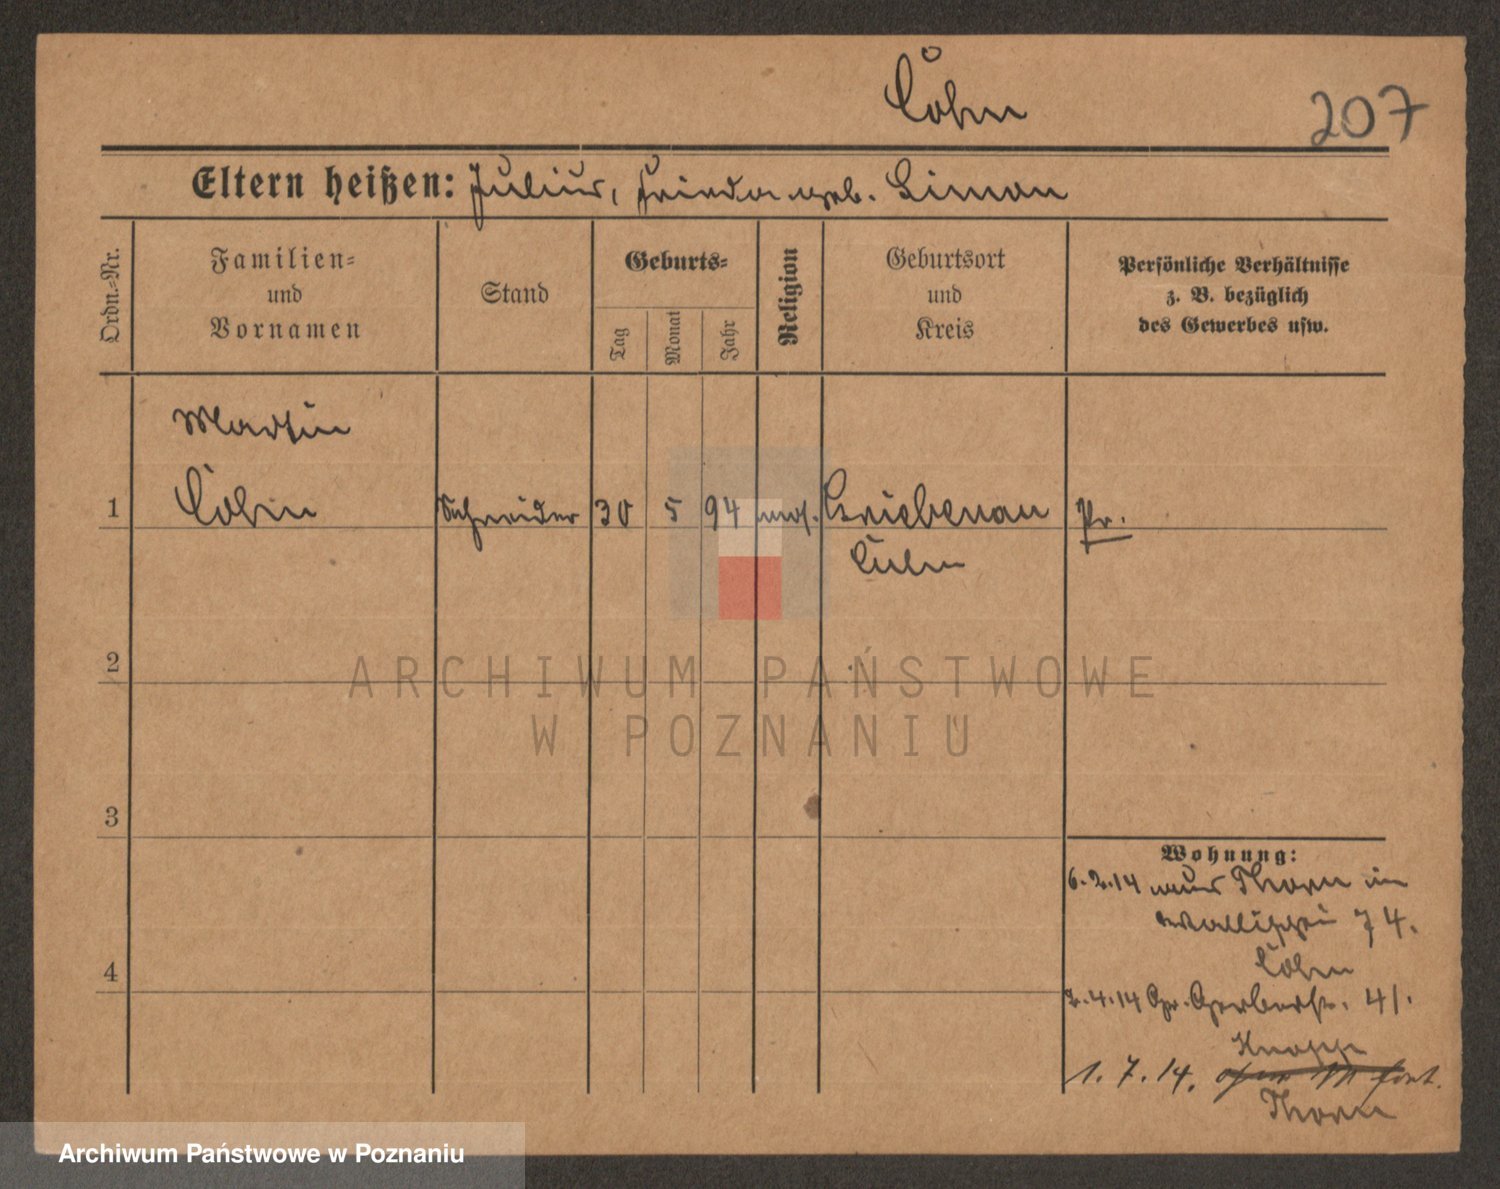 Cohn
207
Eltern heißen: Julius, Frieda geb. Simon
Ordn.-Nr.
Familien-
und
Vornamen
Stand
Geburts-
Tag
Monat
Jahr
Religion
Geburtsort
und
Kreis
Persönliche Verhältnisse
z. B. bezüglich
des Gewerbes usw.
Martin
1 Cohn Schneider 30 5 94 mos. Griebenau Pr.
Culm
2
ARCHIWUM PAŃSTWOWE
W POZNANIU
3
Wohnung:
6.2.14 aus Thorn in
Wallischei 74.
Cohn
4
2.4.14 Gr. Gerberstr. 41.
Knopp
1.7.14. fort.
Thorn
Archiwum Państwowe w Poznaniu